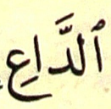 ٱلدَّاعِ